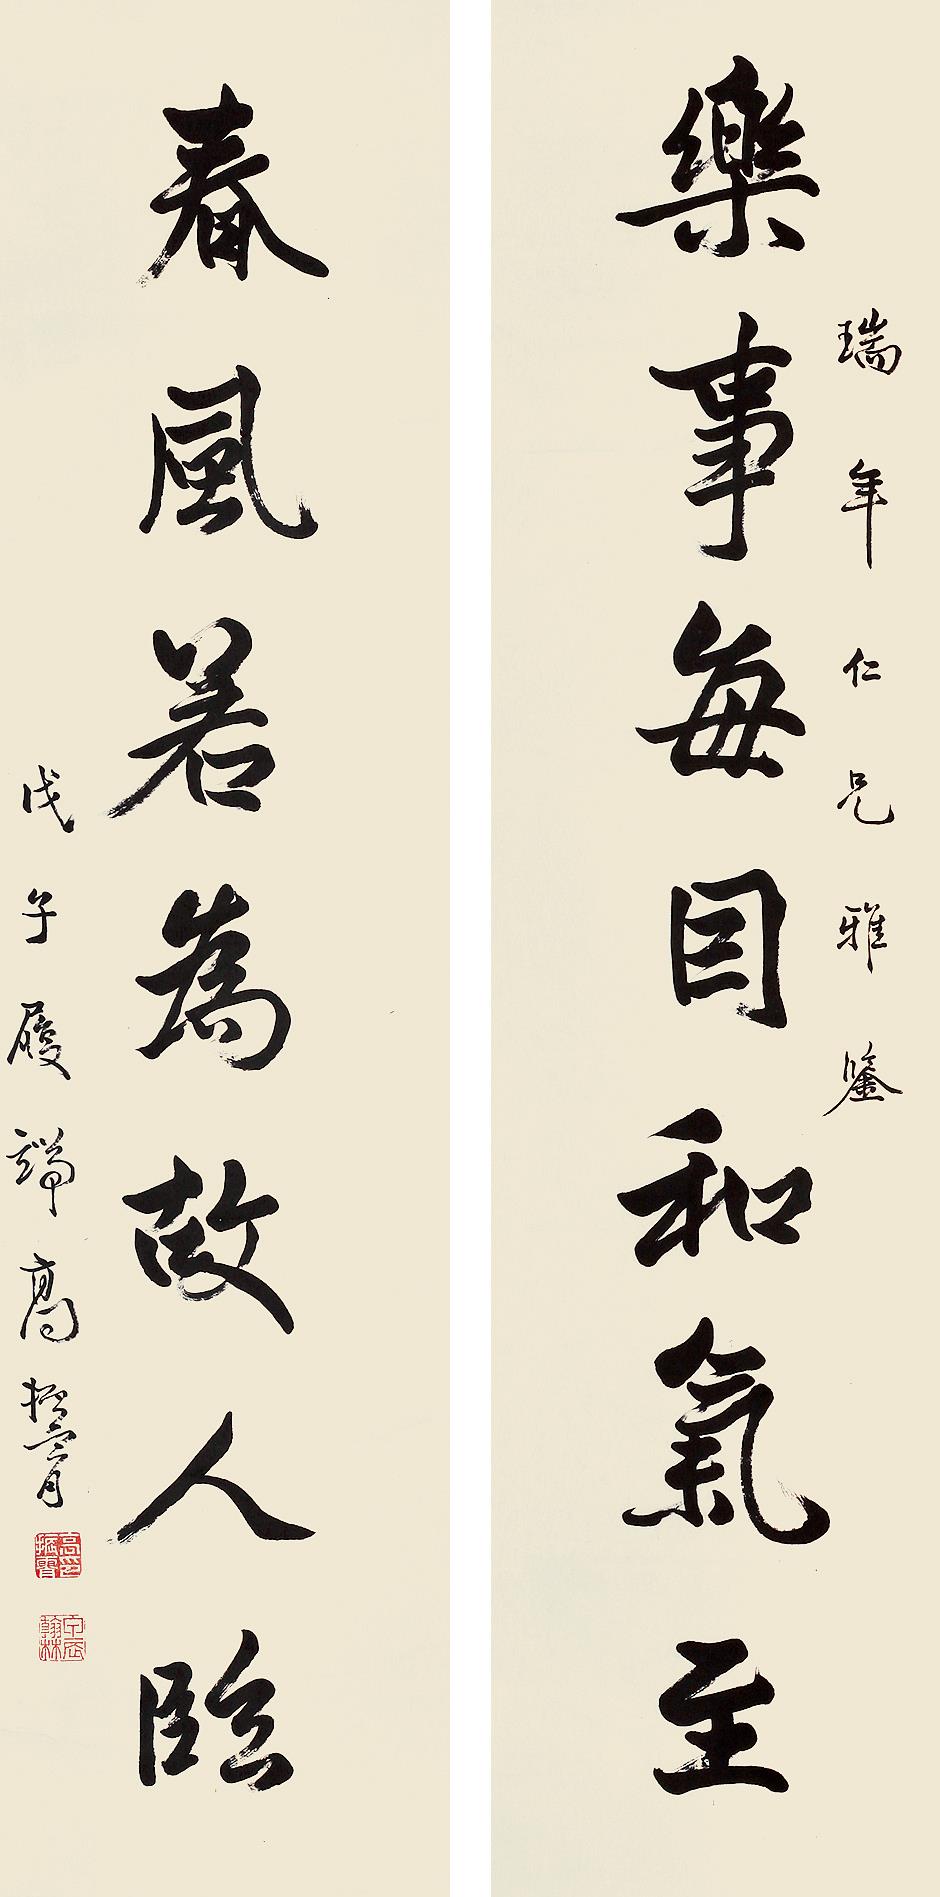 瑞年仁兄雅鑒
樂事每因和氣至
春風若為故人臨
戊子履端高振霄
高印振霄
甲辰翰林